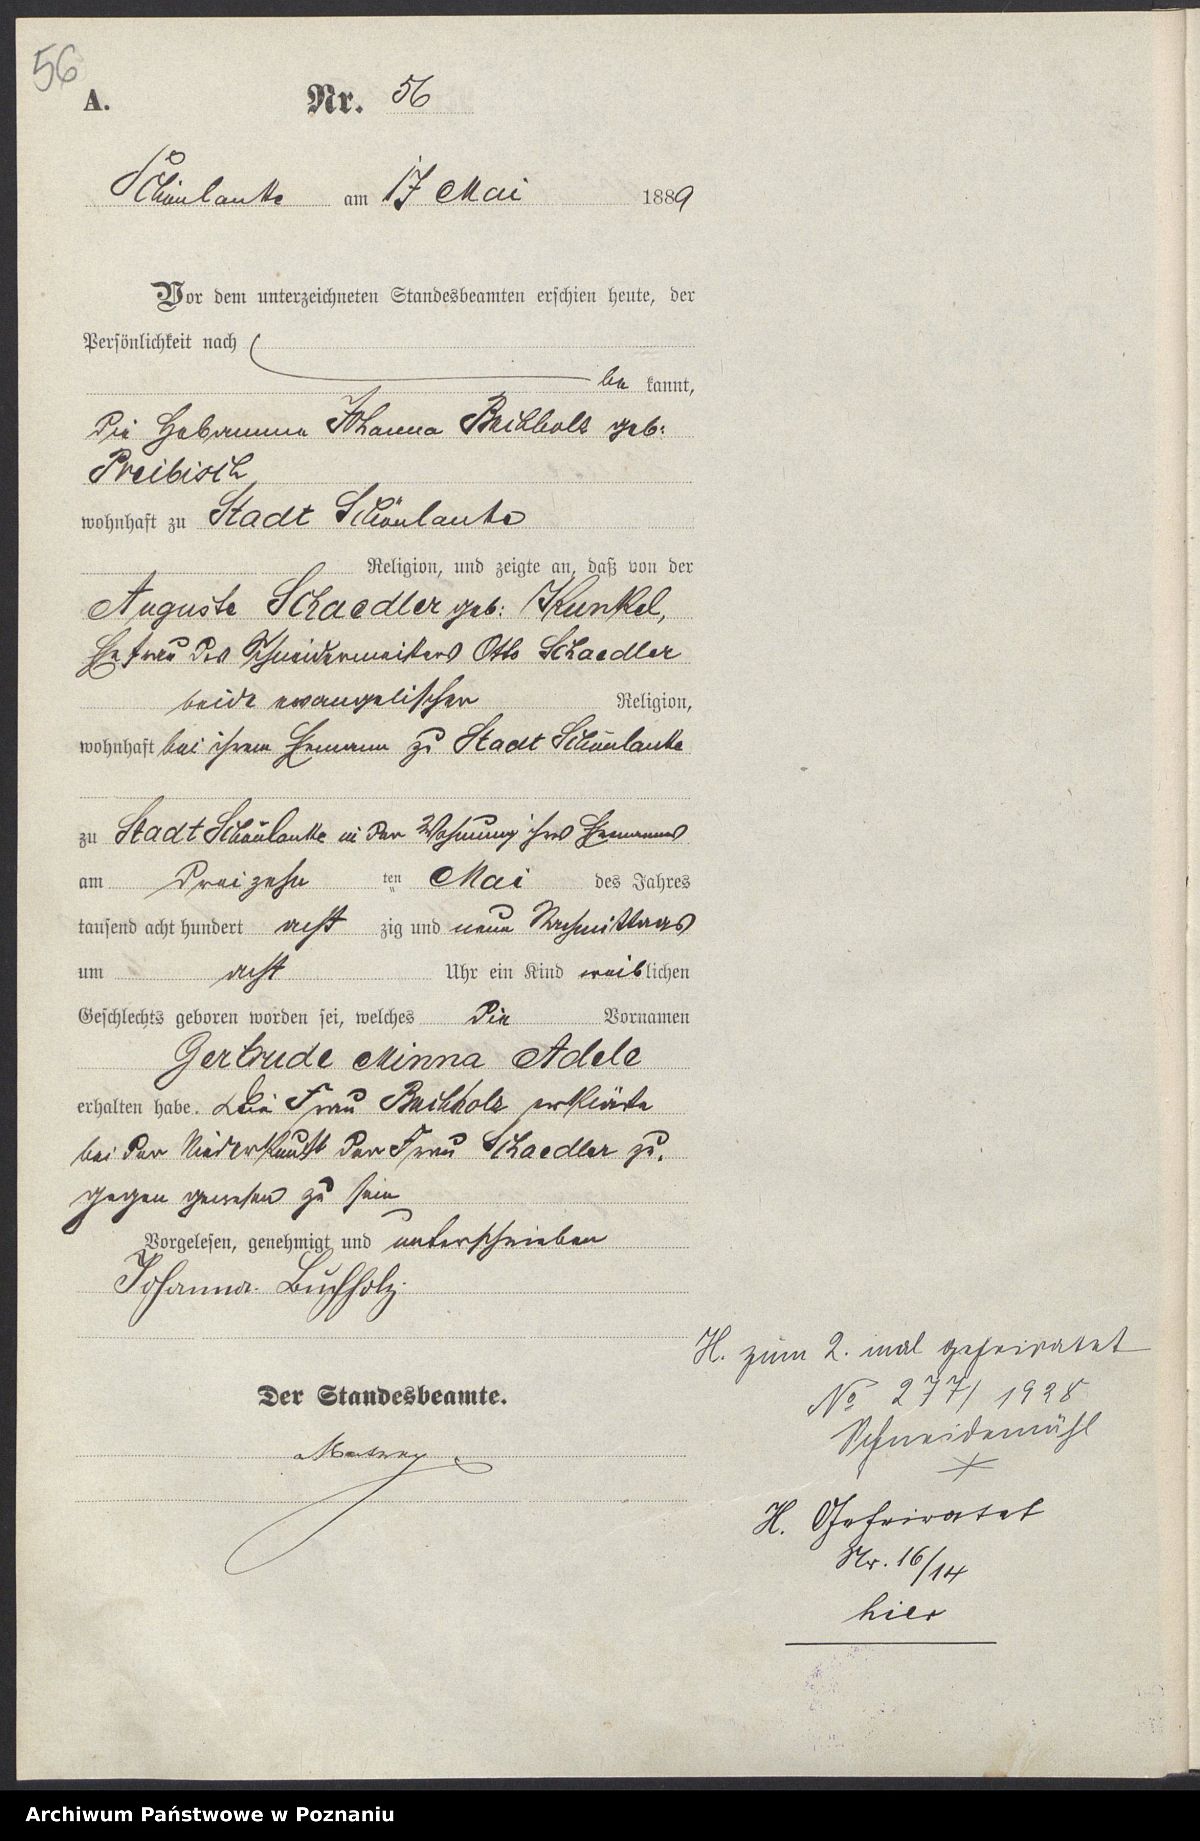 56
A. Nr. 56
Schönlanke am 17 Mai 1889
Vor dem unterzeichneten Standesbeamten erschien heute, der
Persönlichkeit nach
be kannt,
die Hebamme Johanna Buchholz geb:
Preibisch
wohnhaft zu Stadt Schönlanke
Religion, und zeigte an, daß von der
Auguste Schaedler geb: Kunkel,
Ehefrau des Schneidermeisters Otto Schaedler
beide evangelischer Religion,
wohnhaft bei ihrem Ehemann zu Stadt Schönlanke
zu Stadt Schönlanke in der Wohnung ihres Ehemannes
am dreizehn ten Mai des Jahres
tausend acht hundert acht zig und neun Nachmittags
um acht Uhr ein Kind weiblichen
Geschlechts geboren worden sei, welches die Vornamen
Gertrude Minna Adele
erhalten habe. Die Frau Buchholz erklärte
bei der Niederkunft der Frau Schaedler zu-
gegen gewesen zu sein
Vorgelesen, genehmigt und unterschrieben
Johanna Buchholz
Der Standesbeamte.
H. zum 2. mal geheiratet
No 277/1928
Schneidemühl
H. Geheiratet
Nr. 16/14
hier
Archiwum Państwowe w Poznaniu